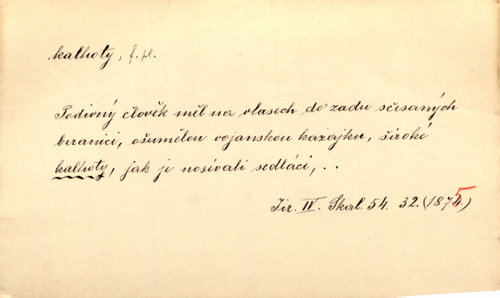 kalhoty, f. pl.
Podivný člověk měl na vlasech do zadu sčesaných
beranici, ošumělou vojanskou kazajku, široké
kalhoty, jak je nosívali sedláci, . .
Jir. IV. Skal. 54. 32. (1875.)